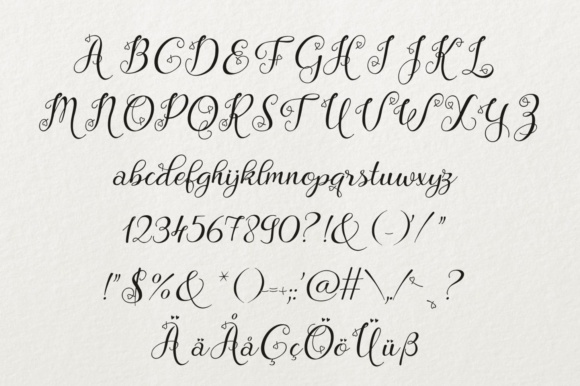 A B C D E F G H I J K L
M N O P Q R S T U V W X Y Z
abcdefghijklmnopqrstuvwxyz
1234567890?!& (-)'/ "
!"$%& *()-=+;:'@#\,./~ ?
Ä ä Å å Ç ç Ö ö Ü ü ß